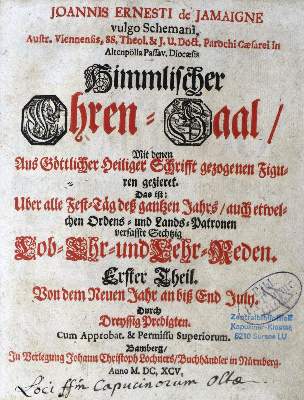 JOANNIS ERNESTI de JAMAIGNE
vulgo Schemani,
Austr. Viennensis, SS. Theol. & J. U. Doct. Parochi Cæsarei in
Altenpölla Passav. Diœcesis
Himmlischer
Ehren-Saal/
Mit denen
Aus Göttlicher Heiliger Schrifft gezogenen Figu-
ren gezieret.
Das ist:
Uber alle Fest-Täg deß gantzen Jahrs/ auch etwel-
chen Ordens- und Lands-Patronen
verfasste Sechtzig
Lob-Ehr-und Lehr-Reden.
Erster Theil.
Von dem Neuen Jahr an biß End July.
Durch
Dreyssig Predigten.
Cum Approbat. & Permissu Superiorum.
Bamberg/
In Verlegung Johann Christoph Lochners/ Buchhändler in Nürnberg.
Anno M. DC, XCV.
Zentralbibliothek
Kapuziner-Kloster
6210 Sursee LU
Loci ffm Capucinorum Oltæ